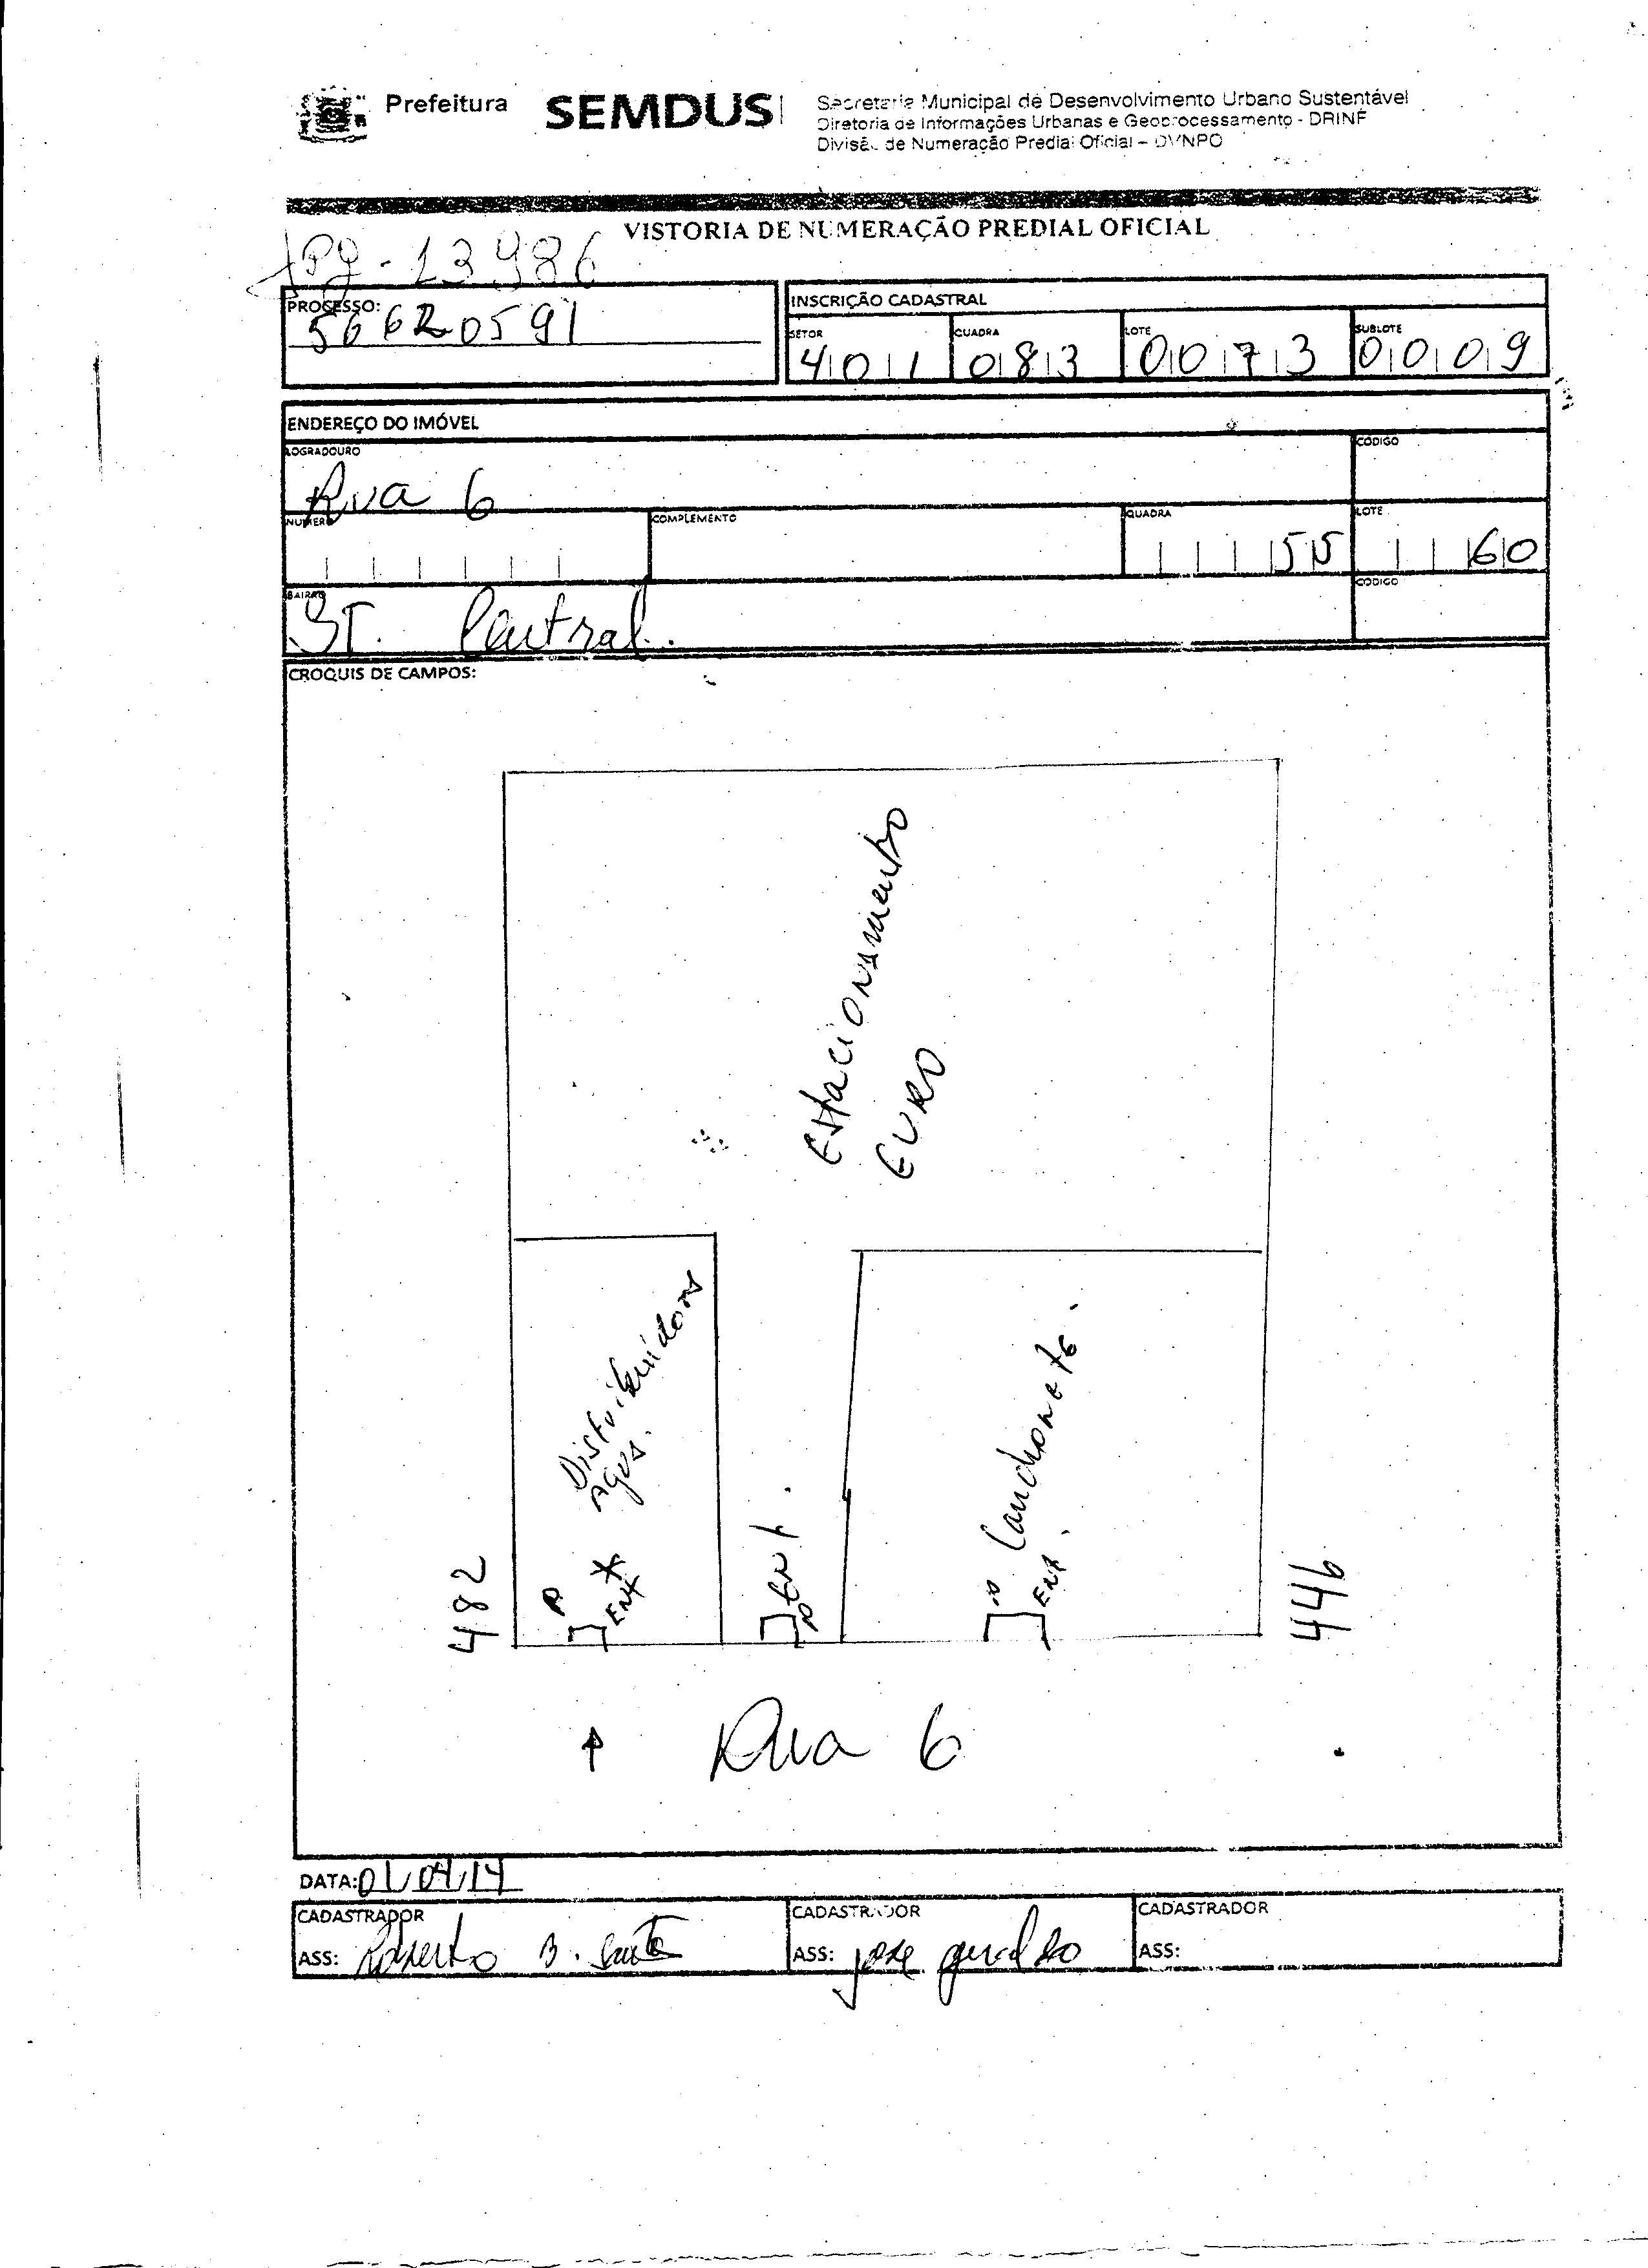 Prefeitura
SEMDUS
Secretaria Municipal de Desenvolvimento Urbano Sustentável
Diretoria de Informações Urbanas e Geoprocessamento - DRINF
Divisão de Numeração Predial Oficial – DVNPO
VISTORIA DE NUMERAÇÃO PREDIAL OFICIAL
13486
PROCESSO:
56620591
INSCRIÇÃO CADASTRAL
SETOR
401
QUADRA
083
LOTE
0073
SUBLOTE
0009
ENDEREÇO DO IMÓVEL
LOGRADOURO
Rua 6
CODIGO
NUMERO
COMPLEMENTO
QUADRA
55
LOTE
60
BAIRRO
ST. Central.
CODIGO
CROQUIS DE CAMPOS:
Estacionamento
EURO
Distribuidora
Agua.
ENT
ENT.
Lanchonete.
ENT.
482
446
Rua 6
DATA: 01/04/14
CADASTRADOR
ASS: Roberto B.
CADASTRADOR
ASS: jose geraldo
CADASTRADOR
ASS: